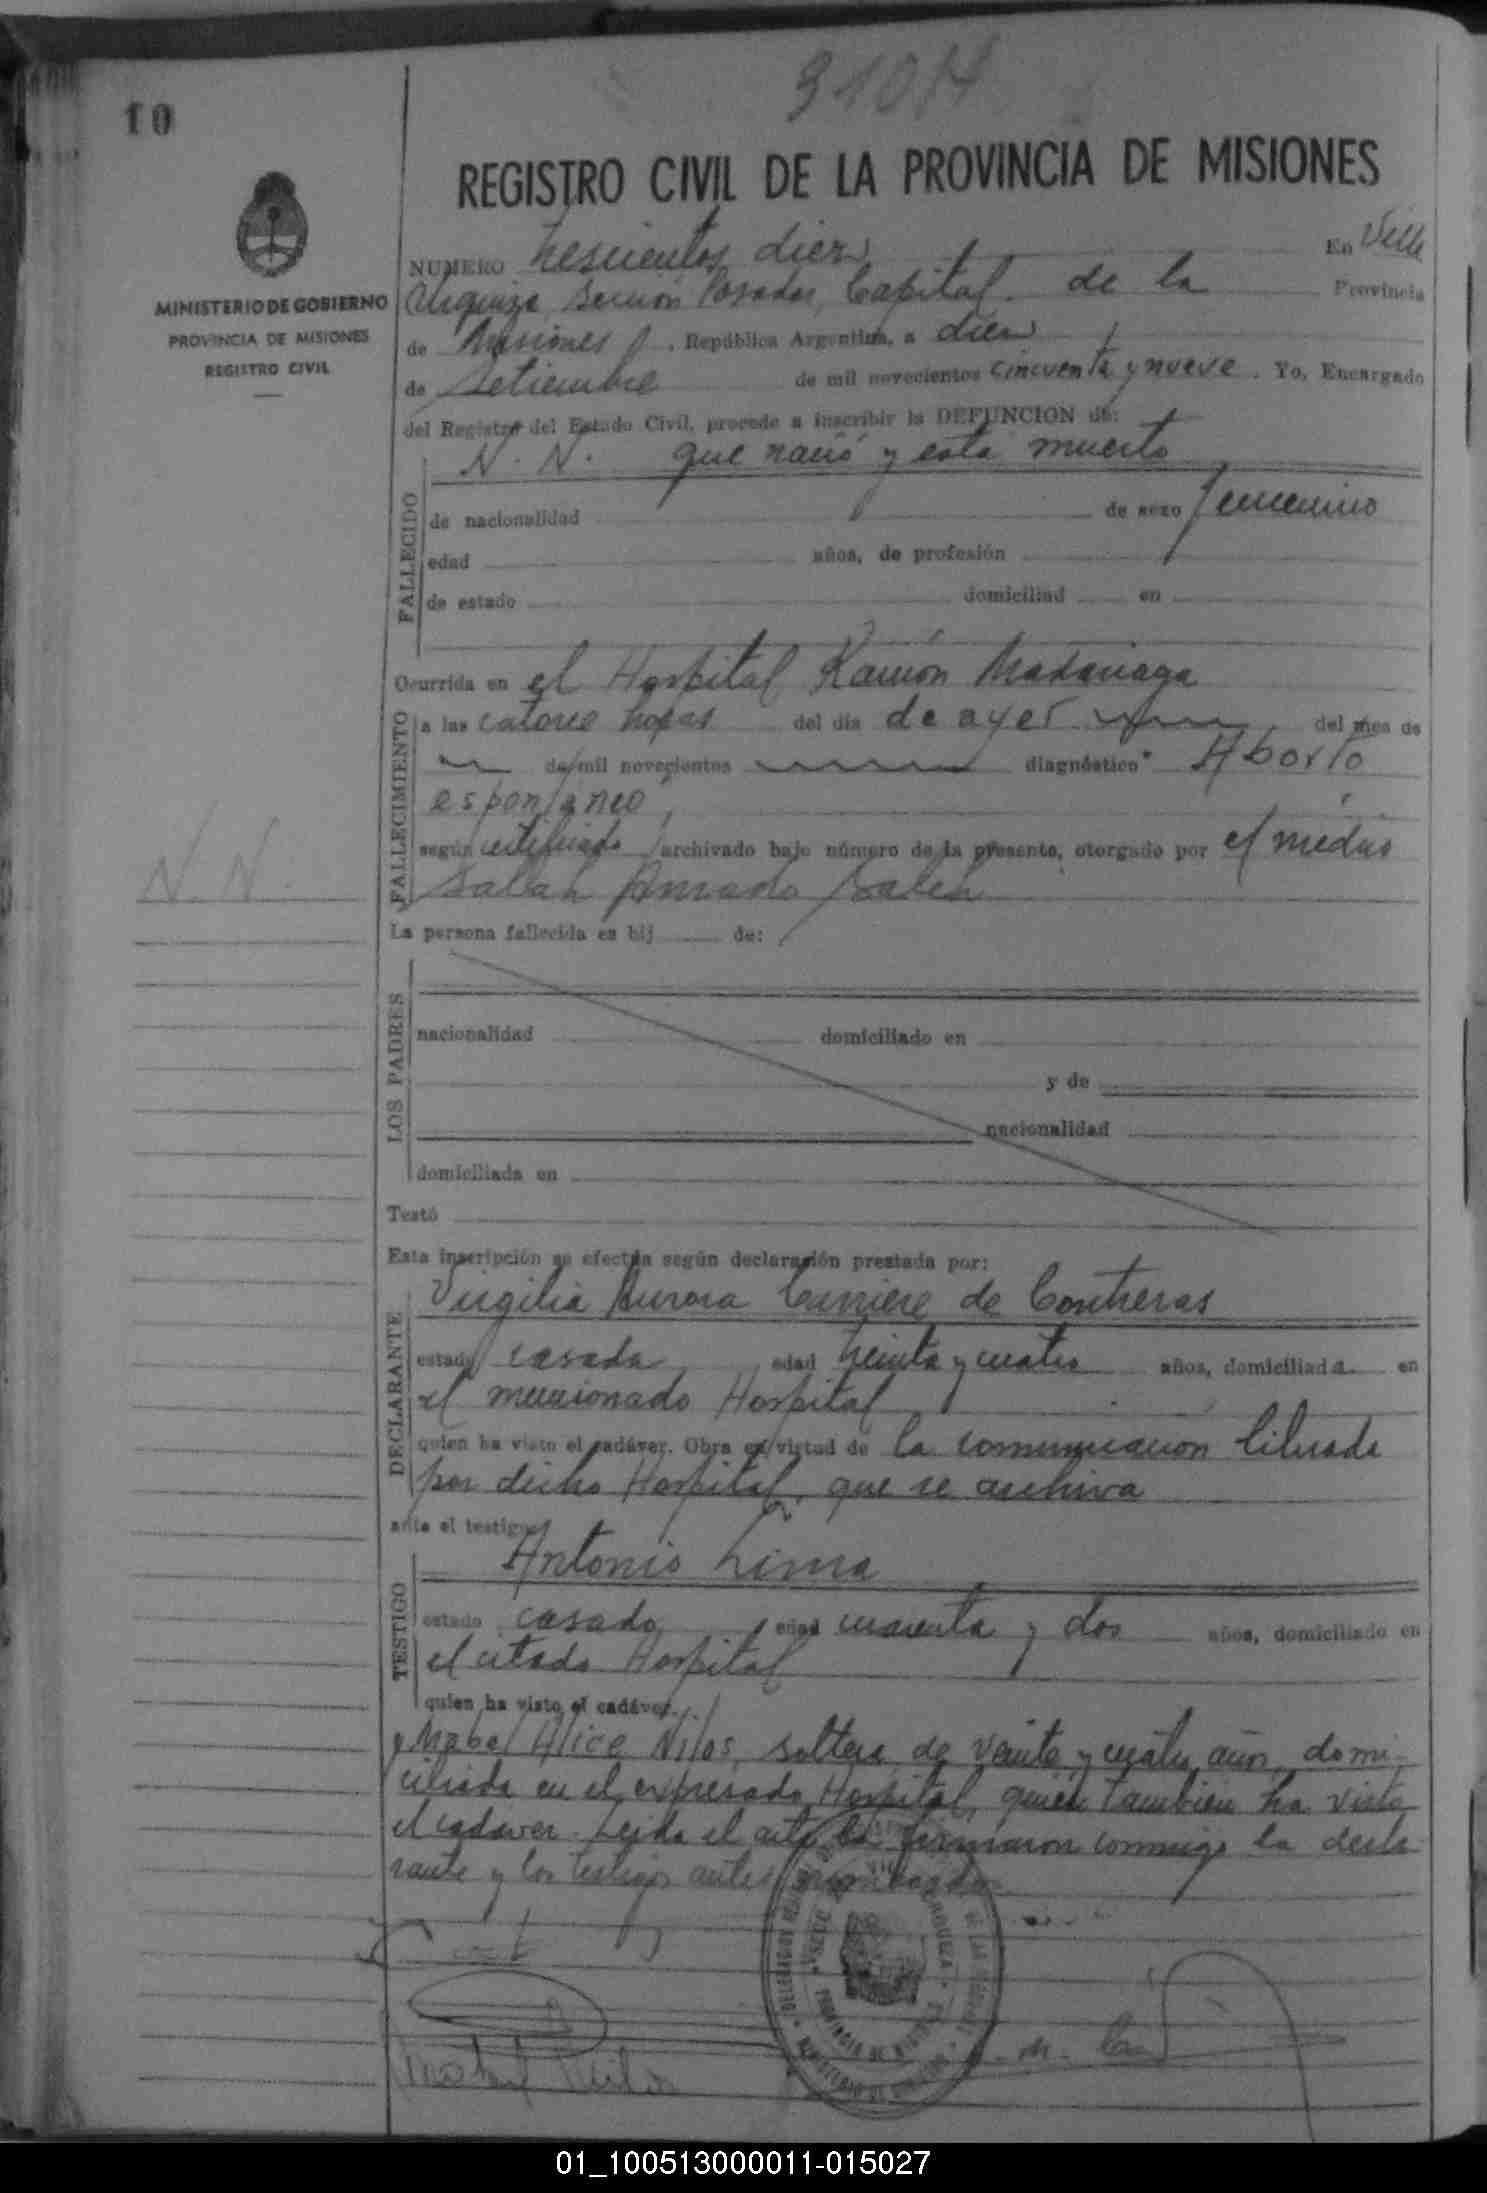 310 H
10
REGISTRO CIVIL DE LA PROVINCIA DE MISIONES
MINISTERIO DE GOBIERNO
PROVINCIA DE MISIONES
REGISTRO CIVIL
NUMERO trescientos diez En Villa
Urquiza Sección Posadas, Capital de la Provincia
de Misiones, República Argentina, a diez
de Setiembre de mil novecientos cincuenta y nueve. Yo, Encargado
del Registro del Estado Civil, procedo a inscribir la DEFUNCION de:
N. N. que nació y está muerto
FALLECIDO
de nacionalidad de sexo femenino
edad años, de profesión
de estado domiciliad en
Ocurrida en el Hospital Ramón Madariaga
FALLECIMIENTO
a las catorce horas del día de ayer del mes de
de mil novecientos diagnóstico Aborto
espontáneo
según certificado archivado bajo número de la presente, otorgado por el médico
Salah Amado Saleh
N. N.
La persona fallecida es hij de:
LOS PADRES
nacionalidad domiciliado en
y de
nacionalidad
domiciliada en
Testó
Esta inscripción se efectúa según declaración prestada por:
DECLARANTE
Virgilia Aurora de Contreras
estado casada edad treinta y cuatro años, domiciliada en
el mencionado Hospital
quien ha visto el cadáver. Obra en virtud de la comunicación librada
por dicho Hospital, que se archiva
ante el testigo
TESTIGO
Antonio Lima
estado casado edad cuarenta y dos años, domiciliado en
el citado Hospital
quien ha visto el cadáver.
y Mabel Alice Nilos, soltera, de veinte y cuatro años, domi-
ciliada en el expresado Hospital, quien también ha visto
el cadáver. Leída el acta la firmaron conmigo la decla-
rante y los testigos antes nombrados
PROVINCIA DE MISIONES
01_100513000011-015027